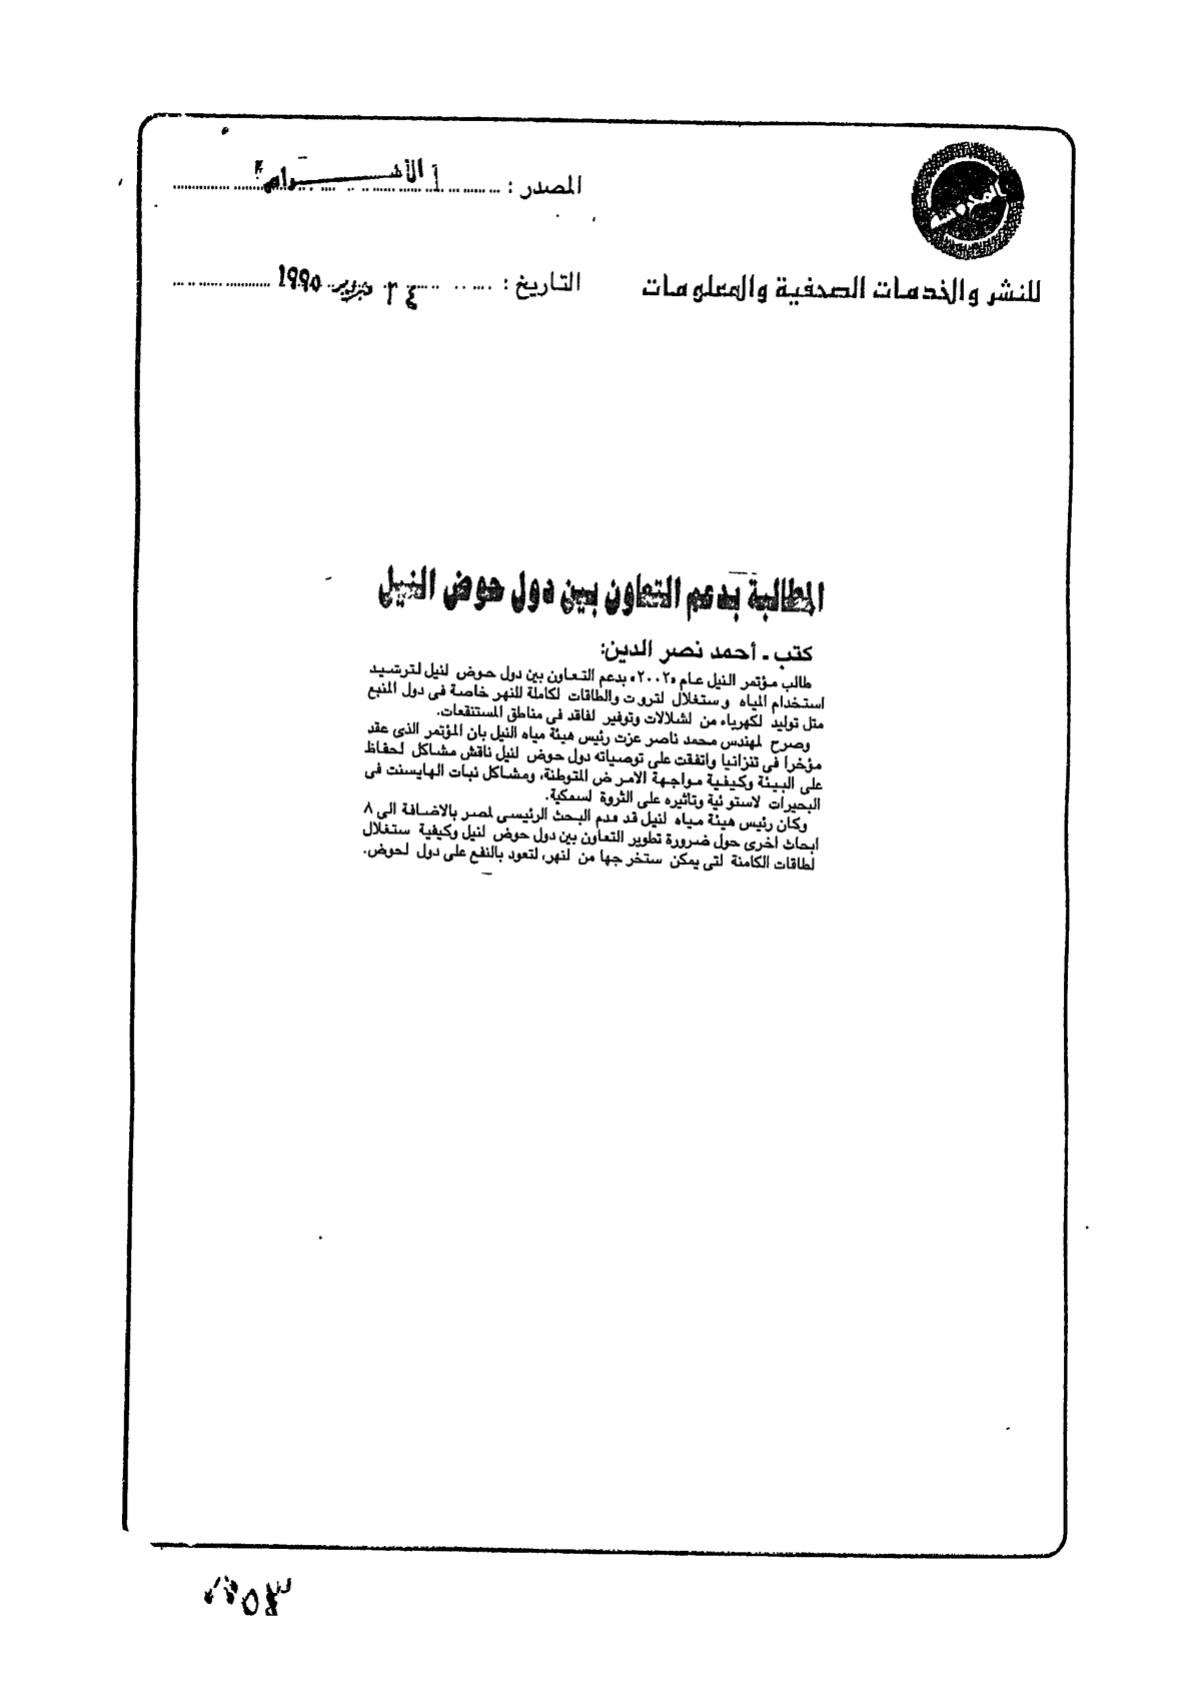 المصدر : الأهرام
للنشر والخدمات الصحفية والمعلومات
التاريخ : ٢٤ فبراير ١٩٩٥
المطالبة بدعم التعاون بين دول حوض النيل
كتب ـ أحمد نصر الدين:
طالب مؤتمر النيل عام «٢٠٠٢» بدعم التعاون بين دول حوض لنيل لترشيد
استخدام المياه وستغلال لثروت والطاقات لكاملة للنهر خاصة فى دول المنبع
مثل توليد لكهرباء من لشلالات وتوفير لفاقد فى مناطق المستنقعات.
وصرح لمهندس محمد ناصر عزت رئيس هيئة مياه النيل بان المؤتمر الذى عقد
مؤخرا فى تنزانيا واتفقت على توصياته دول حوض لنيل ناقش مشاكل لحفاظ
على البيئة وكيفية مواجهة الامرض المتوطنة، ومشاكل نبات الهايسنت فى
البحيرات لاستوئية وتاثيره على الثروة لسمكية.
وكان رئيس هيئة مياه لنيل قد قدم البحث الرئيسى لمصر بالاضافة الى ٨
ابحاث اخرى حول ضرورة تطوير التعاون بين دول حوض لنيل وكيفية ستغلال
لطاقات الكامنة لتى يمكن ستخرجها من لنهر، لتعود بالنفع على دول لحوض.